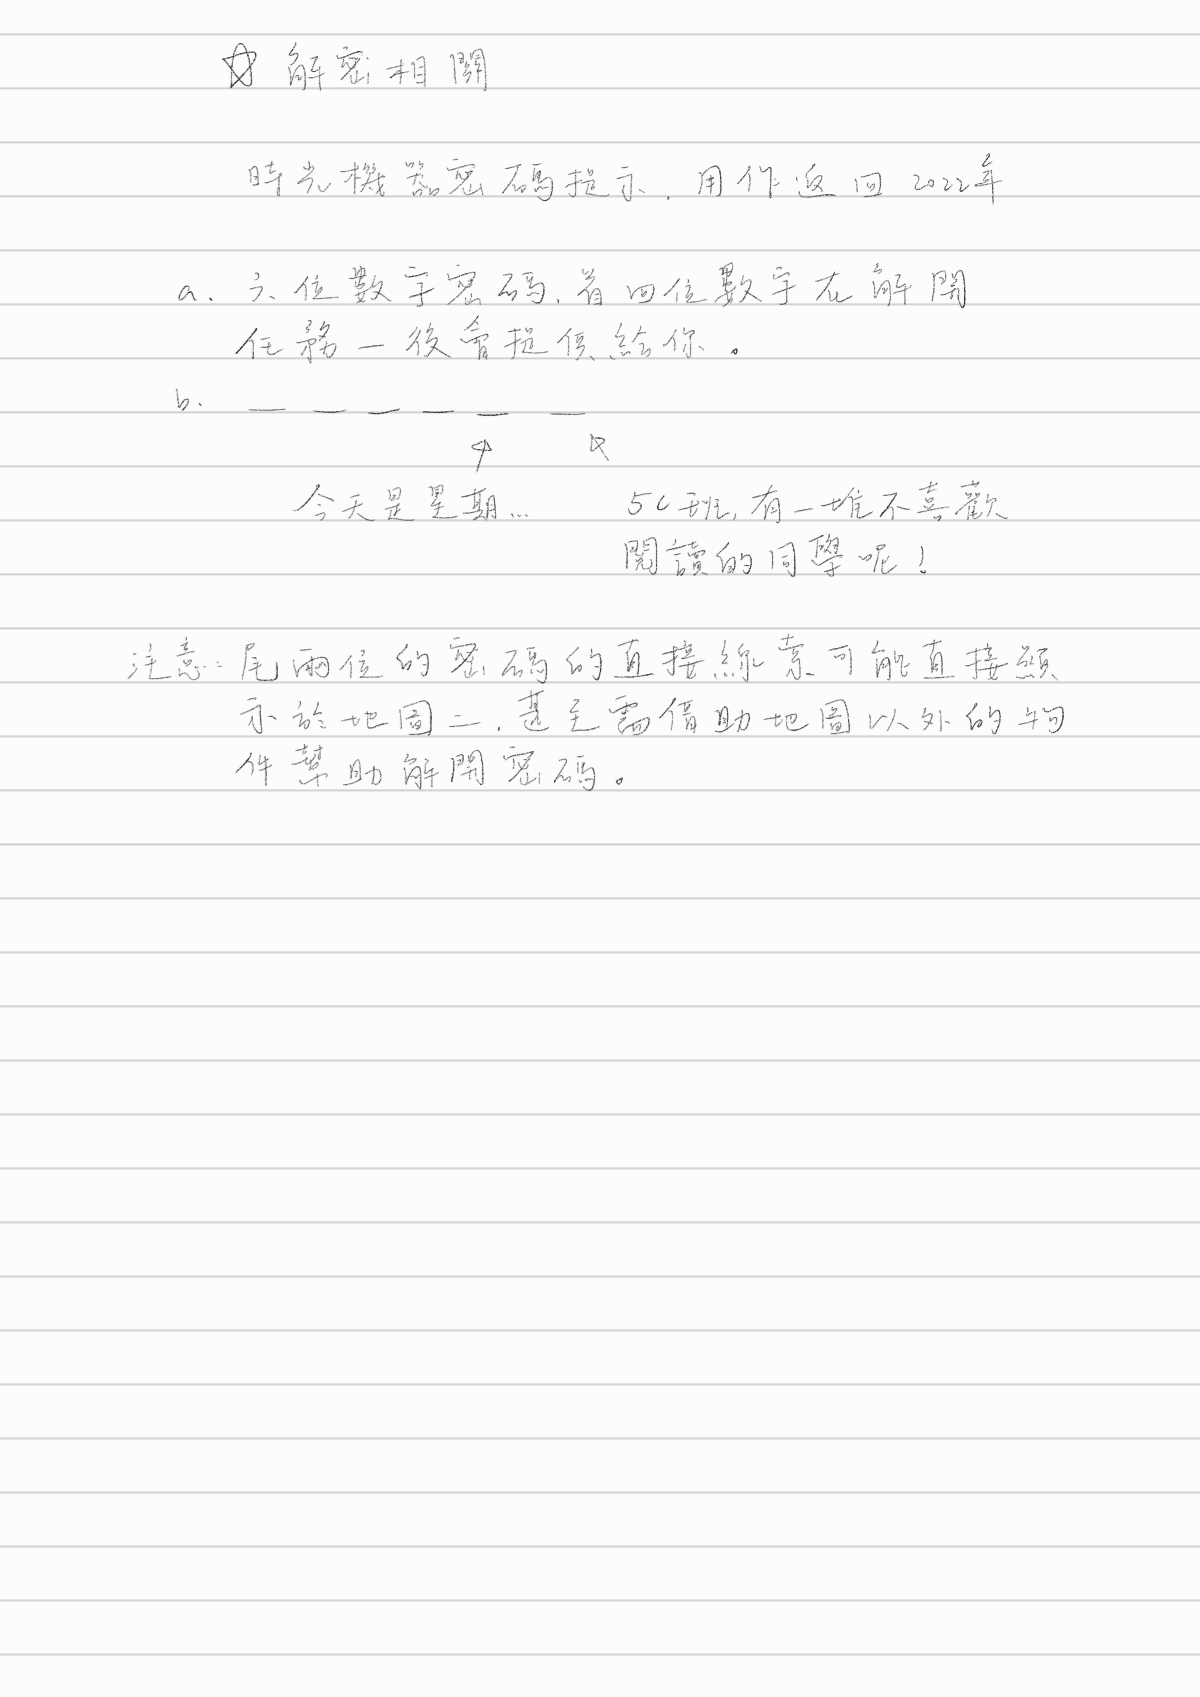 ☆ 解密相關
時光機器密碼提示，用作返回 2022年
a. 六位數字密碼，首四位數字在解開
任務一後會提供給你。
b. _ _ _ _ _ _
今天是星期... 5C班，有一堆不喜歡
閱讀的同學呢！
注意：尾兩位的密碼的直接線索可能直接顯
示於地圖二，甚至需借助地圖以外的物
件幫助解開密碼。